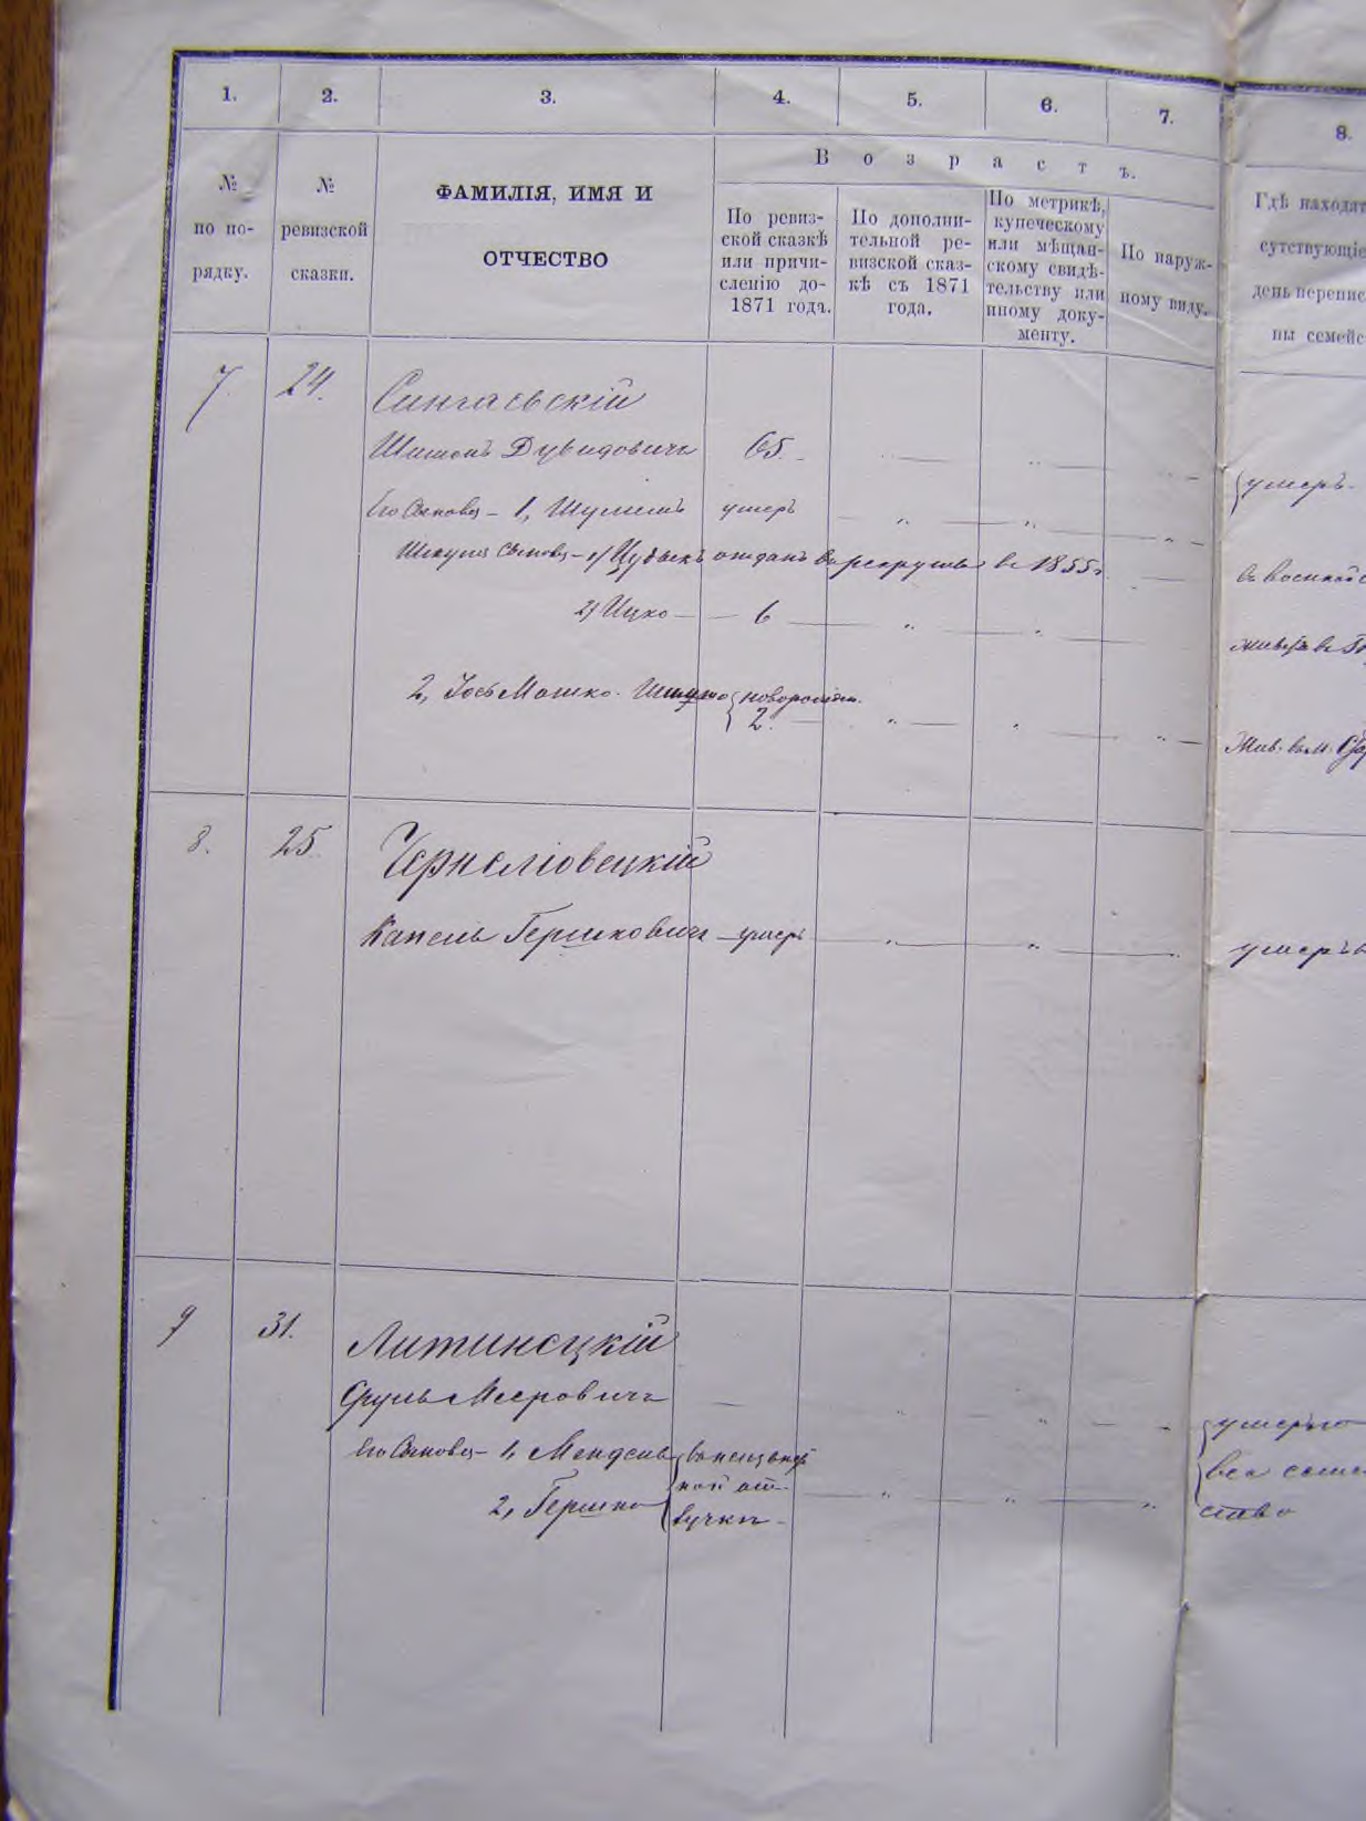 1. 2. 3. 4. 5. 6. 7. 8.
Возрастъ.
№ по по-рядку.
№ ревизской сказки.
ФАМИЛІЯ, ИМЯ И
ОТЧЕСТВО
По ревиз-
ской сказкѣ
или причи-
сленію до-
1871 года.
По дополни-
тельной ре-
визской сказ-
кѣ съ 1871
года.
По метрикѣ,
купеческому
или мѣщан-
скому свидѣ-
тельству или
иному доку-
менту.
По наруж-
ному виду.
Гдѣ находят
сутствующіе
день перепис
ны семейс
7. 24. Сингаевскій
Шимонъ Дувидовичъ 65.
умеръ
Его сыновья - 1, умеръ
сыновья - 1) отданъ в рекруты в 1855 г.
2) Ицко - 6
живетъ в
2, Мошко новорожден.
2.
Жив. въ м.
8. 25. Чернеліовецкій
Капель Гершковичъ - умеръ
умеръ
9 31. Литинецкій
Сруль Мееровичъ
умерло
Его сыновья - 1, Мендель
все семе
2, Гершко
ство